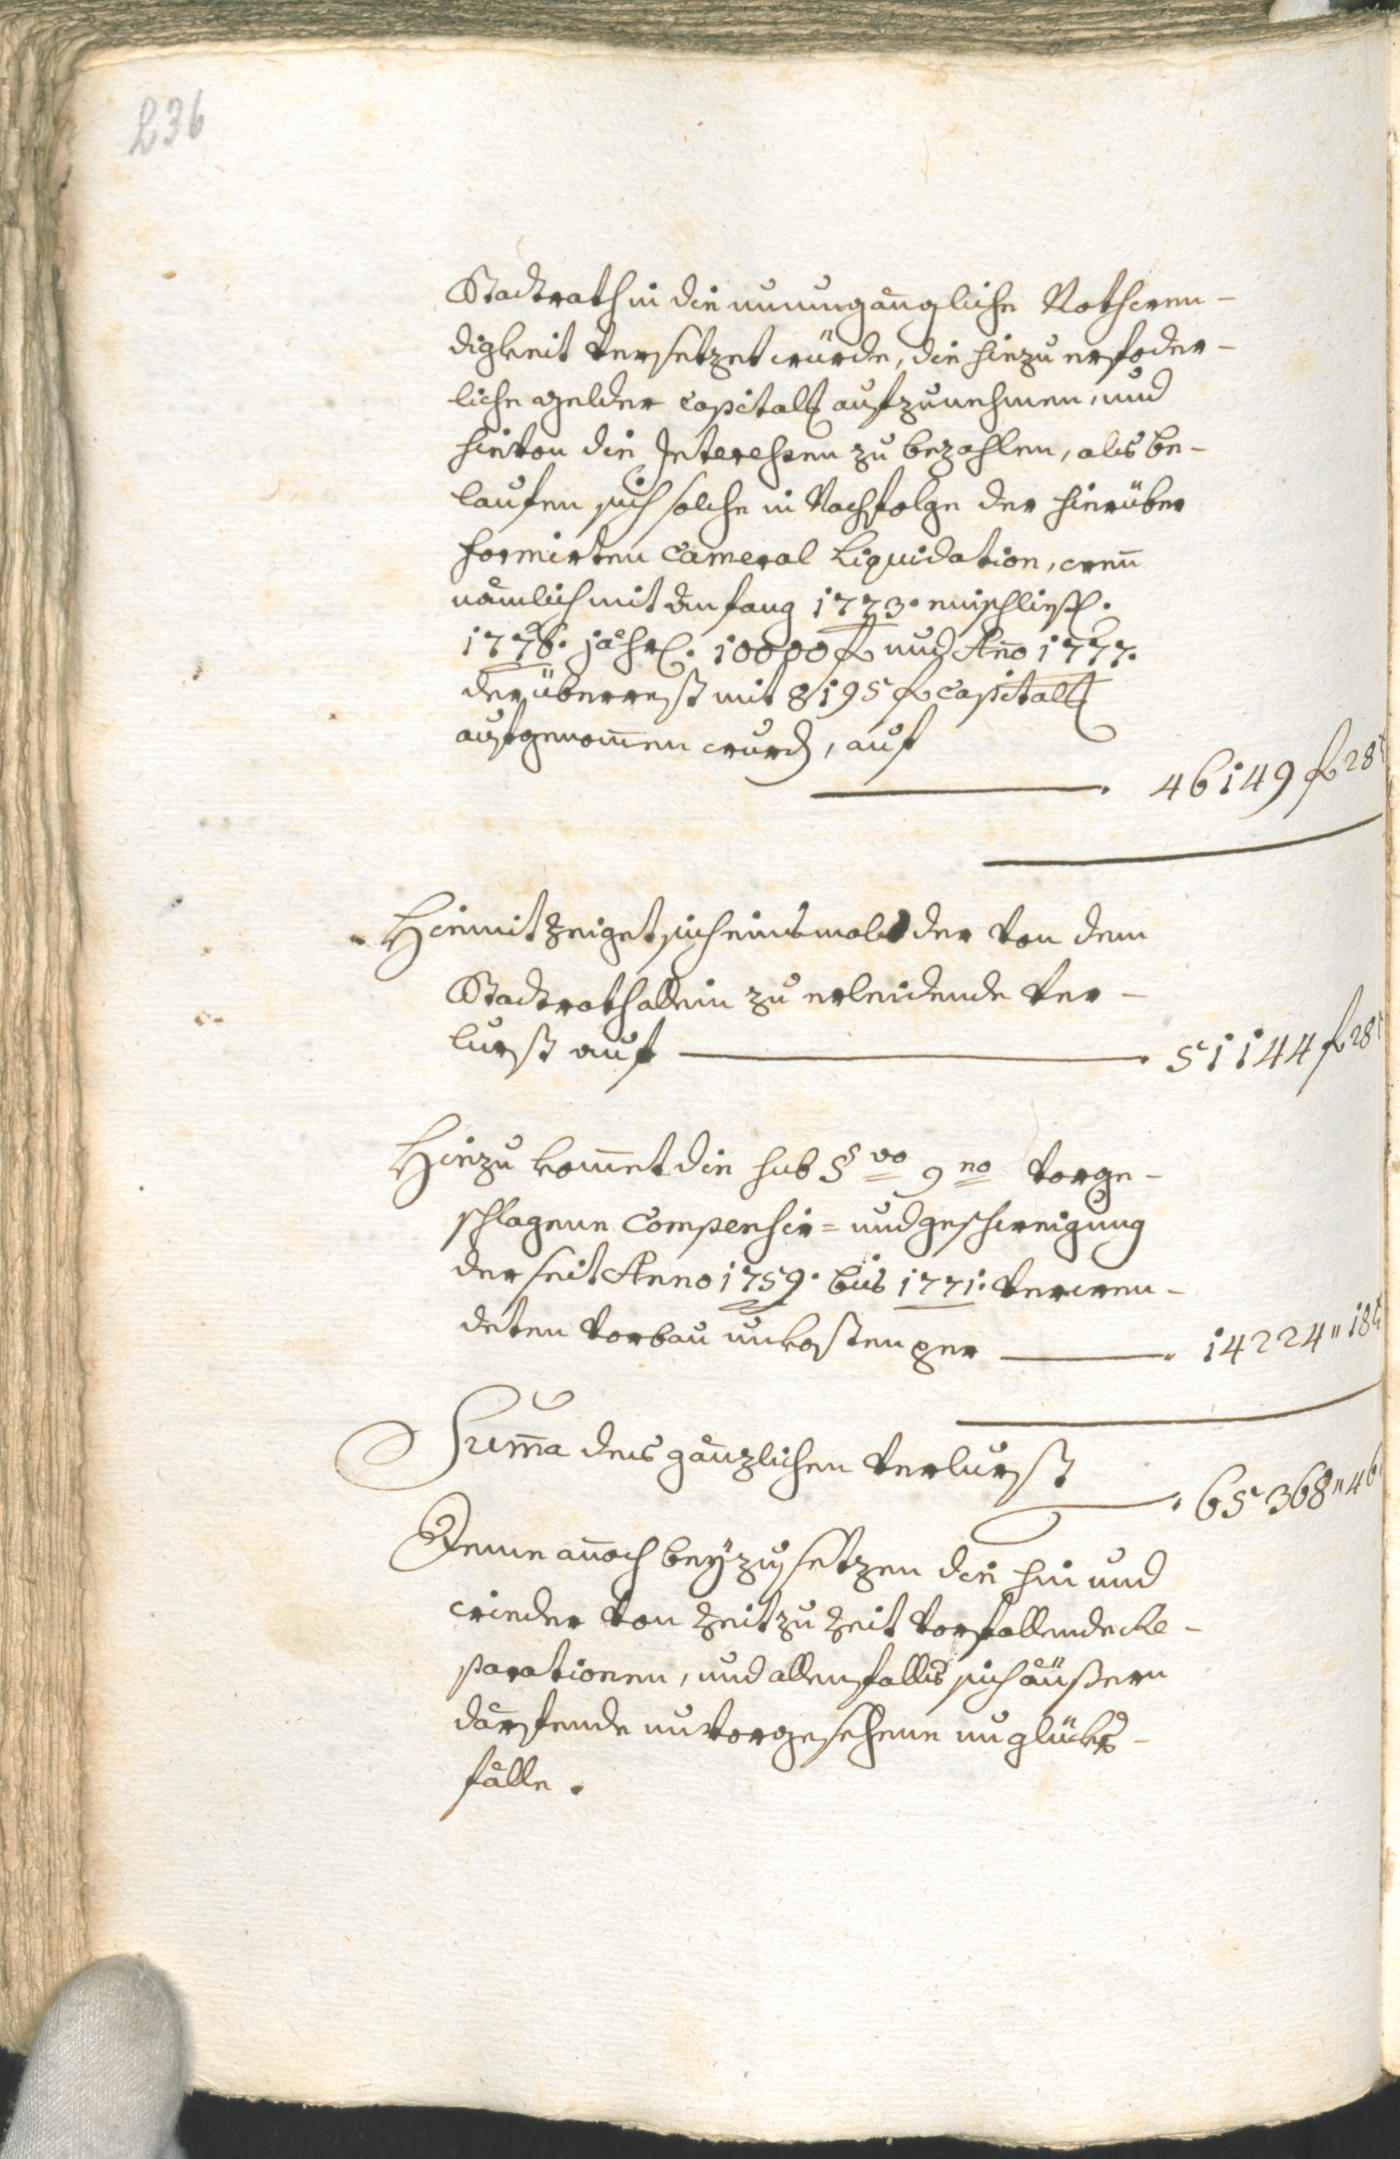 236
Stadtrath in die unumgängliche Nothwen-
digkeit versetzet würde, die hiezu erfoder-
liche gelder capital aufzunehmen, und
hievon die Interessen zu bezahlen, als be-
laufen sich solche in Nachfolge der hierüber
formirten Cameral Liquidation, wenn
nämlich mit Anfang 1773. einschließl.
1776. jährl. 10000 f und Año 1777.
der überrest mit 8195 f capital
aufgenom̄en wurd, auf
46149 f 28
Hiemit zeiget sich einsmals der von dem
Stadtrath allein zu erleidende Ver-
lurst auf 51144 f 28
Hiezu kom̄et die sub § vo 9 no vorge-
schlagene Compensir= und geschweigung
der seit Anno 1759. bis 1771. verwen-
deten vorbau unkosten per 14224 " 18
Sum̄a des gänzlichen Verlurst
65368 " 46
Deme an̄och beyzusetzen die hin und
wieder von Zeit zu Zeit vorfallende Re-
parationen, und allenfalls sich äußern
därfende unvorgesehene unglücks-
fälle.